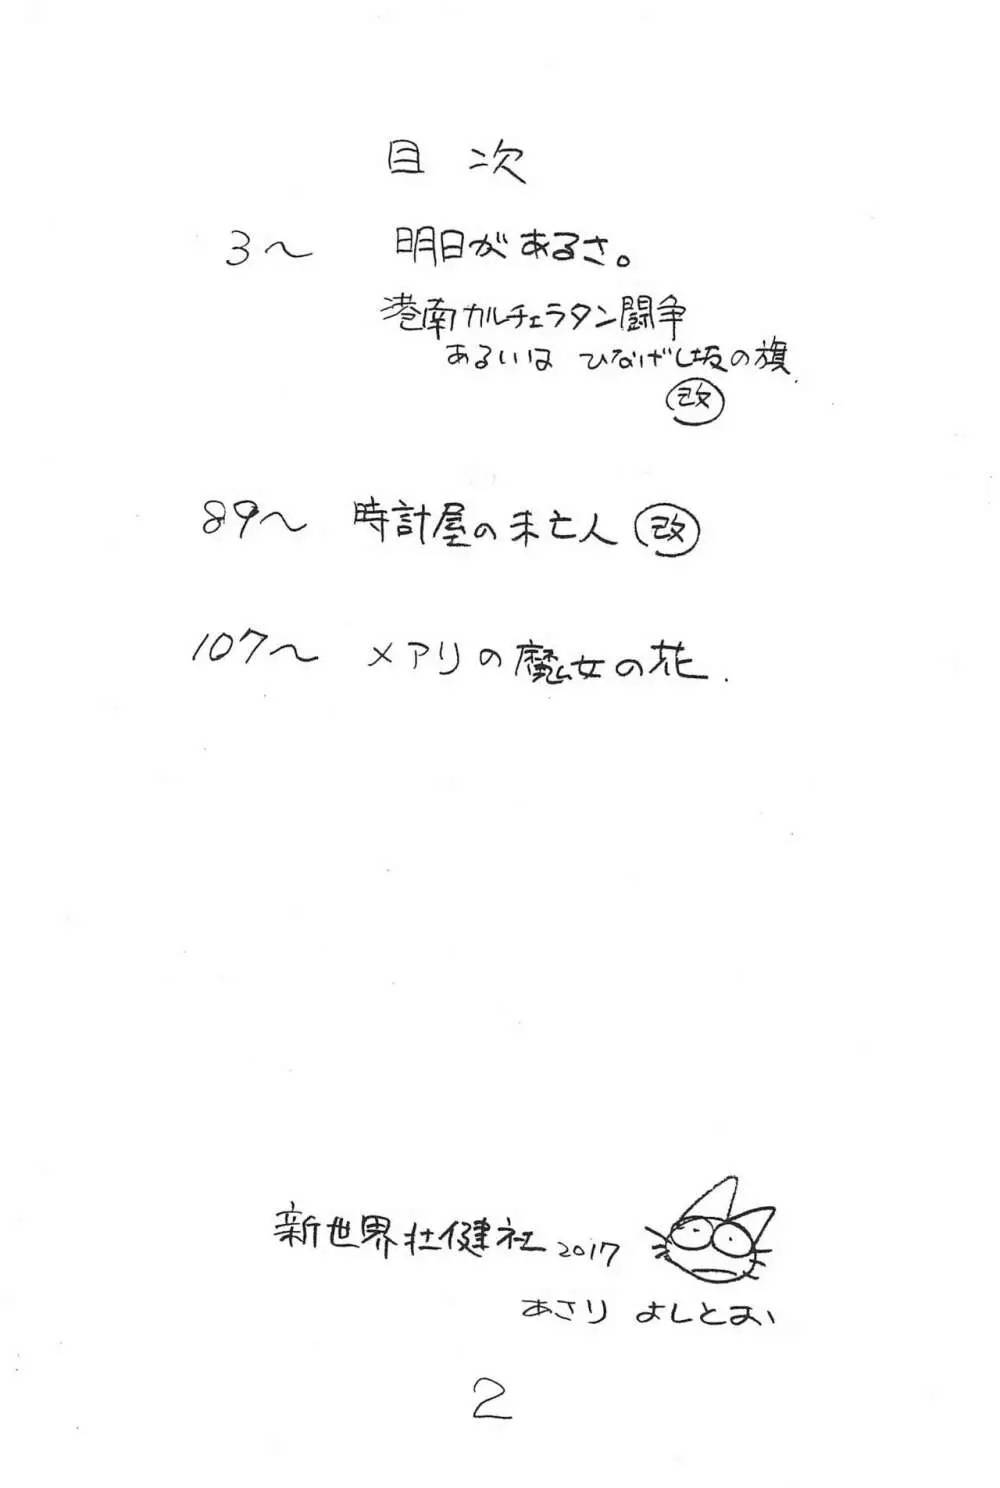 目 次
3〜 明日があるさ。
港南カルチェラタン闘争
あるいは ひなげし坂の旗
改
89〜 時計屋の未亡人 改
107〜 メアリの魔女の花.
新世界壮健社 2017
あさり よしとお
2